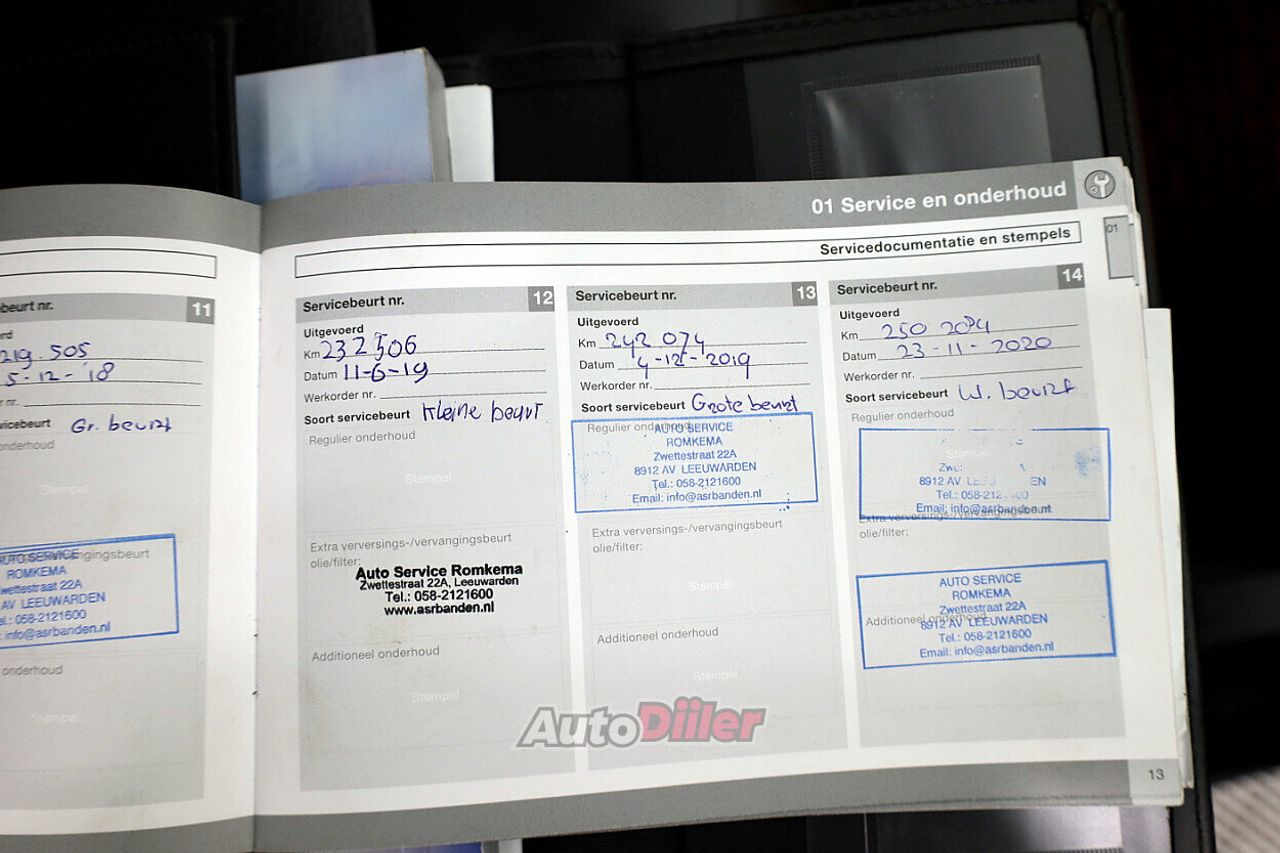 01 Service en onderhoud
01
Servicedocumentatie en stempels
beurt nr. 11
219.505
5-12-'18
nr.
servicebeurt Gr. beurt
onderhoud
Stempel
vervangingsbeurt
AUTO SERVICE
ROMKEMA
Zwettestraat 22A
AV LEEUWARDEN
Tel.: 058-2121600
info@asrbanden.nl
onderhoud
Stempel
Servicebeurt nr. 12
Uitgevoerd
Km 232506
Datum 11-6-19
Werkorder nr.
Soort servicebeurt kleine beurt
Regulier onderhoud
Stempel
Extra verversings-/vervangingsbeurt
olie/filter:
Auto Service Romkema
Zwettestraat 22A, Leeuwarden
Tel.: 058-2121600
www.asrbanden.nl
Additioneel onderhoud
Stempel
Servicebeurt nr. 13
Uitgevoerd
Km 242 074
Datum 4-12-'2019
Werkorder nr.
Soort servicebeurt Grote beurt
Regulier onderhoud
AUTO SERVICE
ROMKEMA
Zwettestraat 22A
8912 AV LEEUWARDEN
Tel.: 058-2121600
Email: info@asrbanden.nl
Extra verversings-/vervangingsbeurt
olie/filter:
Stempel
Additioneel onderhoud
Stempel
Servicebeurt nr. 14
Uitgevoerd
Km 250
Datum 23-11-2020
Werkorder nr.
Soort servicebeurt beurt
Regulier onderhoud
Stempel
8912 AV
Tel.:
Email: info@asrbanden.nl
Extra verversings-/vervangingsbeurt
olie/filter:
AUTO SERVICE
ROMKEMA
Zwettestraat 22A
Additioneel onderhoud
8912 AV LEEUWARDEN
Tel.: 058-2121600
Email: info@asrbanden.nl
AutoDiiler
13